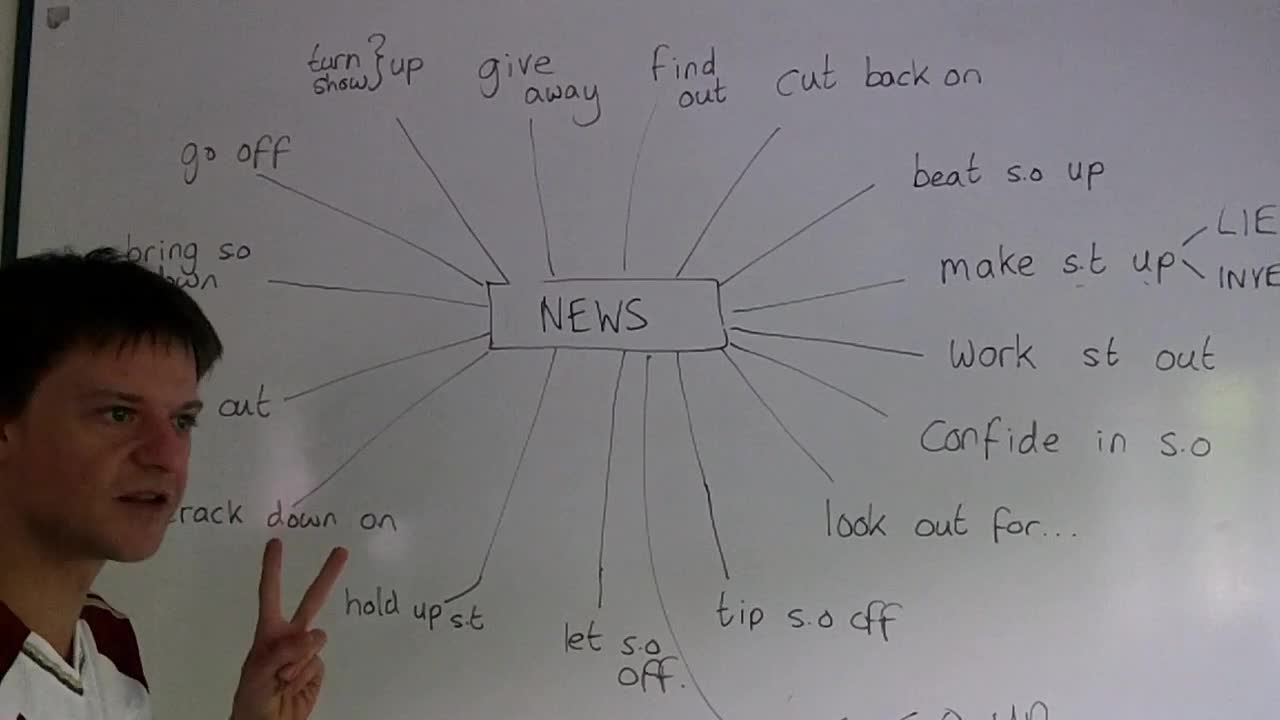 turn } up
show
give
away
find
out
cut back on
go off
beat s.o up
bring so
make s.t up
LIE
NEWS
work st out
out
confide in s.o
down on
look out for...
hold up s.t
tip s.o off
let s.o
off.